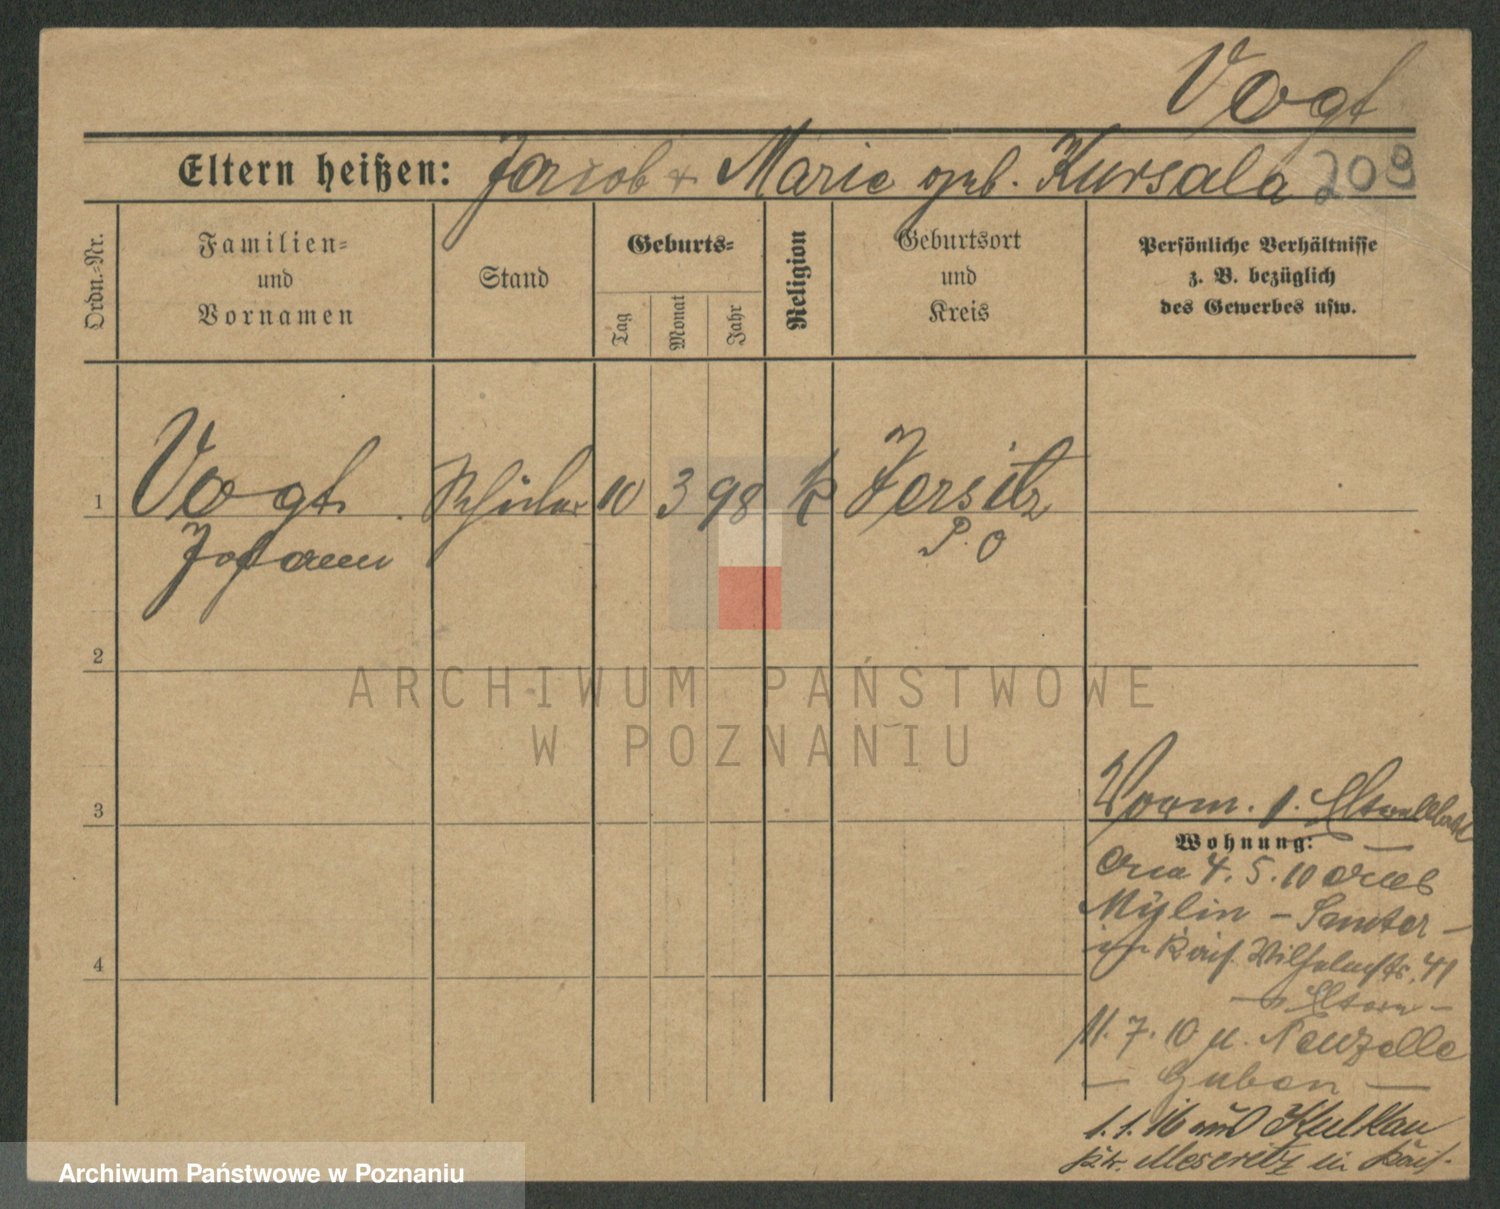 Vogt
Eltern heißen: Jacob + Marie geb. Kursala 209
Ordn.-Nr.
Familien-
und
Vornamen
Stand
Geburts-
Tag
Monat
Jahr
Religion
Geburtsort
und
Kreis
Persönliche Verhältnisse
z. B. bezüglich
des Gewerbes usw.
1 Vogt Schüler 10 3 98 K Jersitz
Johann P. O
2
ARCHIWUM PAŃSTWOWE
W POZNANIU
3
Vorm.
Wohnung:
4. 5. 10
Mylin – Samter –
Wilhelmstr. 41
4
– Eltern –
11. 7. 10 n. Neuzelle
– Guben –
1. 1. 16 aus Kulkau
Kr. Meseritz in
Archiwum Państwowe w Poznaniu